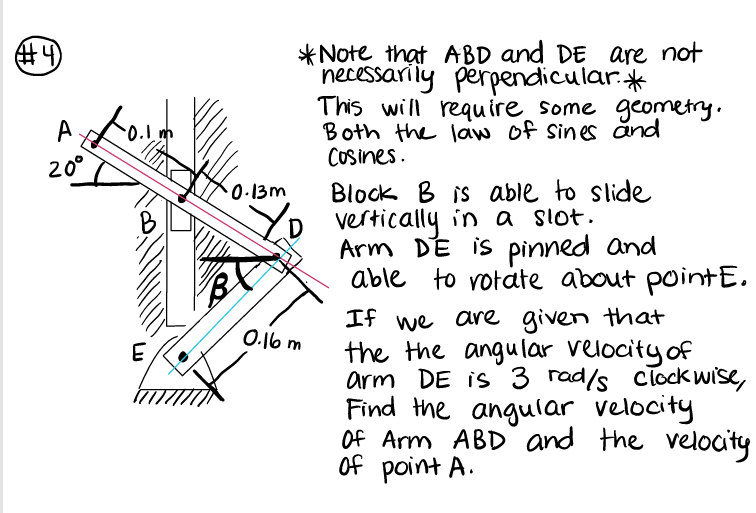 #4
*Note that ABD and DE are not
necessarily perpendicular.*
This will require some geometry.
Both the law of sines and
cosines.
A
0.1 m
20°
0.13m
B
D
β
E
0.16 m
Block B is able to slide
vertically in a slot.
Arm DE is pinned and
able to rotate about point E.
If we are given that
the the angular velocity of
arm DE is 3 rad/s clockwise,
Find the angular velocity
of Arm ABD and the velocity
of point A.